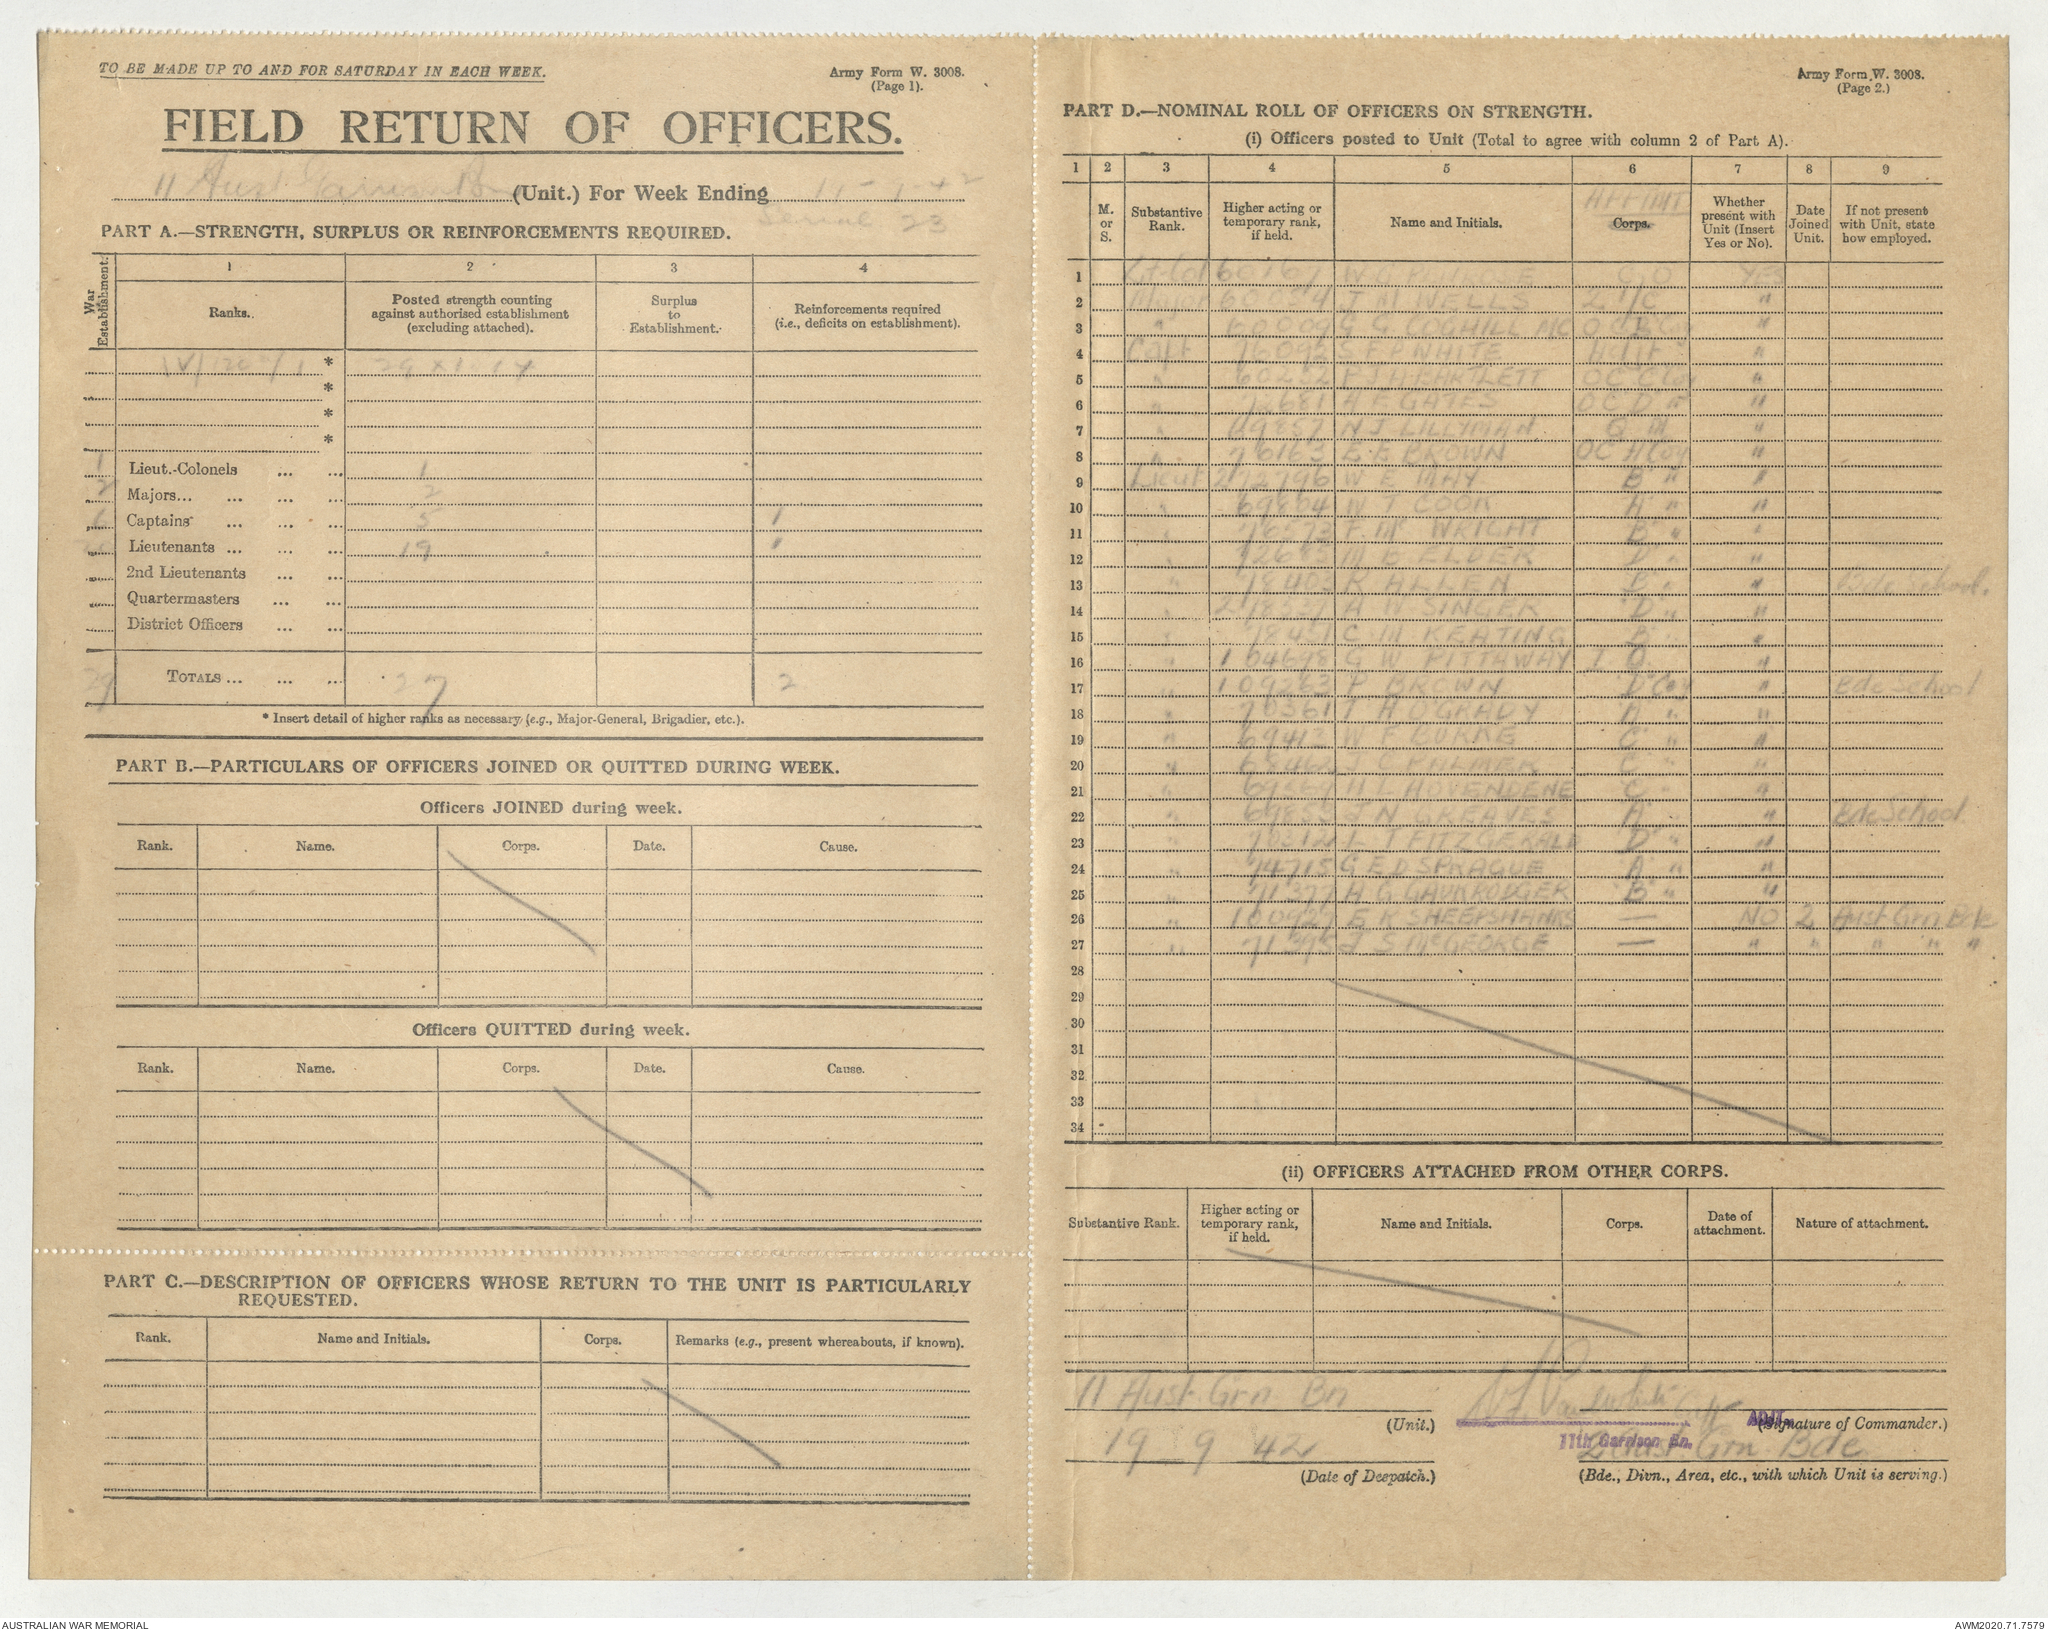 TO BE MADE UP TO AND FOR SATURDAY IN EACH WEEK.
Army Form W. 3008.
(Page 1).
FIELD RETURN OF OFFICERS.
11 Aust Garrison Bn (Unit.) For Week Ending
Serial 23
PART A.—STRENGTH, SURPLUS OR REINFORCEMENTS REQUIRED.
War Establishment.
1 2 3 4
Ranks. Posted strength counting against authorised establishment (excluding attached). Surplus to Establishment. Reinforcements required (i.e., deficits on establishment).
*
*
*
*
1 Lieut.-Colonels ... ... 1
2 Majors... ... ... ... 2
6 Captains ... ... ... 5 1
Lieutenants ... ... ... 19 "
2nd Lieutenants ... ...
Quartermasters ... ...
District Officers ... ...
29 TOTALS ... ... ... 27 2
* Insert detail of higher ranks as necessary (e.g., Major-General, Brigadier, etc.).
PART B.—PARTICULARS OF OFFICERS JOINED OR QUITTED DURING WEEK.
Officers JOINED during week.
Rank. Name. Corps. Date. Cause.
Officers QUITTED during week.
Rank. Name. Corps. Date. Cause.
PART C.—DESCRIPTION OF OFFICERS WHOSE RETURN TO THE UNIT IS PARTICULARLY
REQUESTED.
Rank. Name and Initials. Corps. Remarks (e.g., present whereabouts, if known).
Army Form W. 3008.
(Page 2.)
PART D.—NOMINAL ROLL OF OFFICERS ON STRENGTH.
(i) Officers posted to Unit (Total to agree with column 2 of Part A).
1 2 3 4 5 6 7 8 9
M. or S. Substantive Rank. Higher acting or temporary rank, if held. Name and Initials. APPTMT Corps. Whether present with Unit (Insert Yes or No). Date Joined Unit. If not present with Unit, state how employed.
1 Lt-Col W CO YES
2 Major J M WELLS 2 I/C "
3 " G G COGHILL MC O C "
4 Capt WHITE Adjt "
5 " BARTLETT OC C Coy "
6 " A E GATES OC D " "
7 " N J LILLYMAN Q M "
8 " 76163 E E BROWN OC A Coy "
9 Lieut 272796 W E MAY B " "
10 " 69804 W T COOK A " "
11 " 76573 F Mc WRIGHT B " "
12 " ELDER D " "
13 " 78403 R ALLEN B " " Bde School.
14 " A W SINGER D " "
15 " 78451 C M KEATING "
16 " 104698 G W PITTAWAY I O "
17 " 109263 P BROWN D Coy " Bde School
18 " 70361 A O'GRADY A " "
19 " 69413 W F BURKE C " "
20 " J C PALMER C " "
21 " H L HOVENDENE C " "
22 " 69855 J N GREAVES A " " Bde School.
23 " L T FITZGERALD D " "
24 " 74715 G E D SPRAGUE A " "
25 " 71377 H G GAUNRODGER B " "
26 " 100927 E K SHEEPSHANKS — NO 2 Aust Grn Bde
27 " 71395 J S McGEORGE — " " " " "
28
29
30
31
32
33
34
(ii) OFFICERS ATTACHED FROM OTHER CORPS.
Substantive Rank. Higher acting or temporary rank, if held. Name and Initials. Corps. Date of attachment. Nature of attachment.
11 Aust. Grn Bn
(Unit.)
Capt ADJT. (Signature of Commander.)
11th Garrison Bn.
19 9 42
2 Aust Grn Bde
(Date of Despatch.)
(Bde., Divn., Area, etc., with which Unit is serving.)
AUSTRALIAN WAR MEMORIAL
AWM2020.71.7579